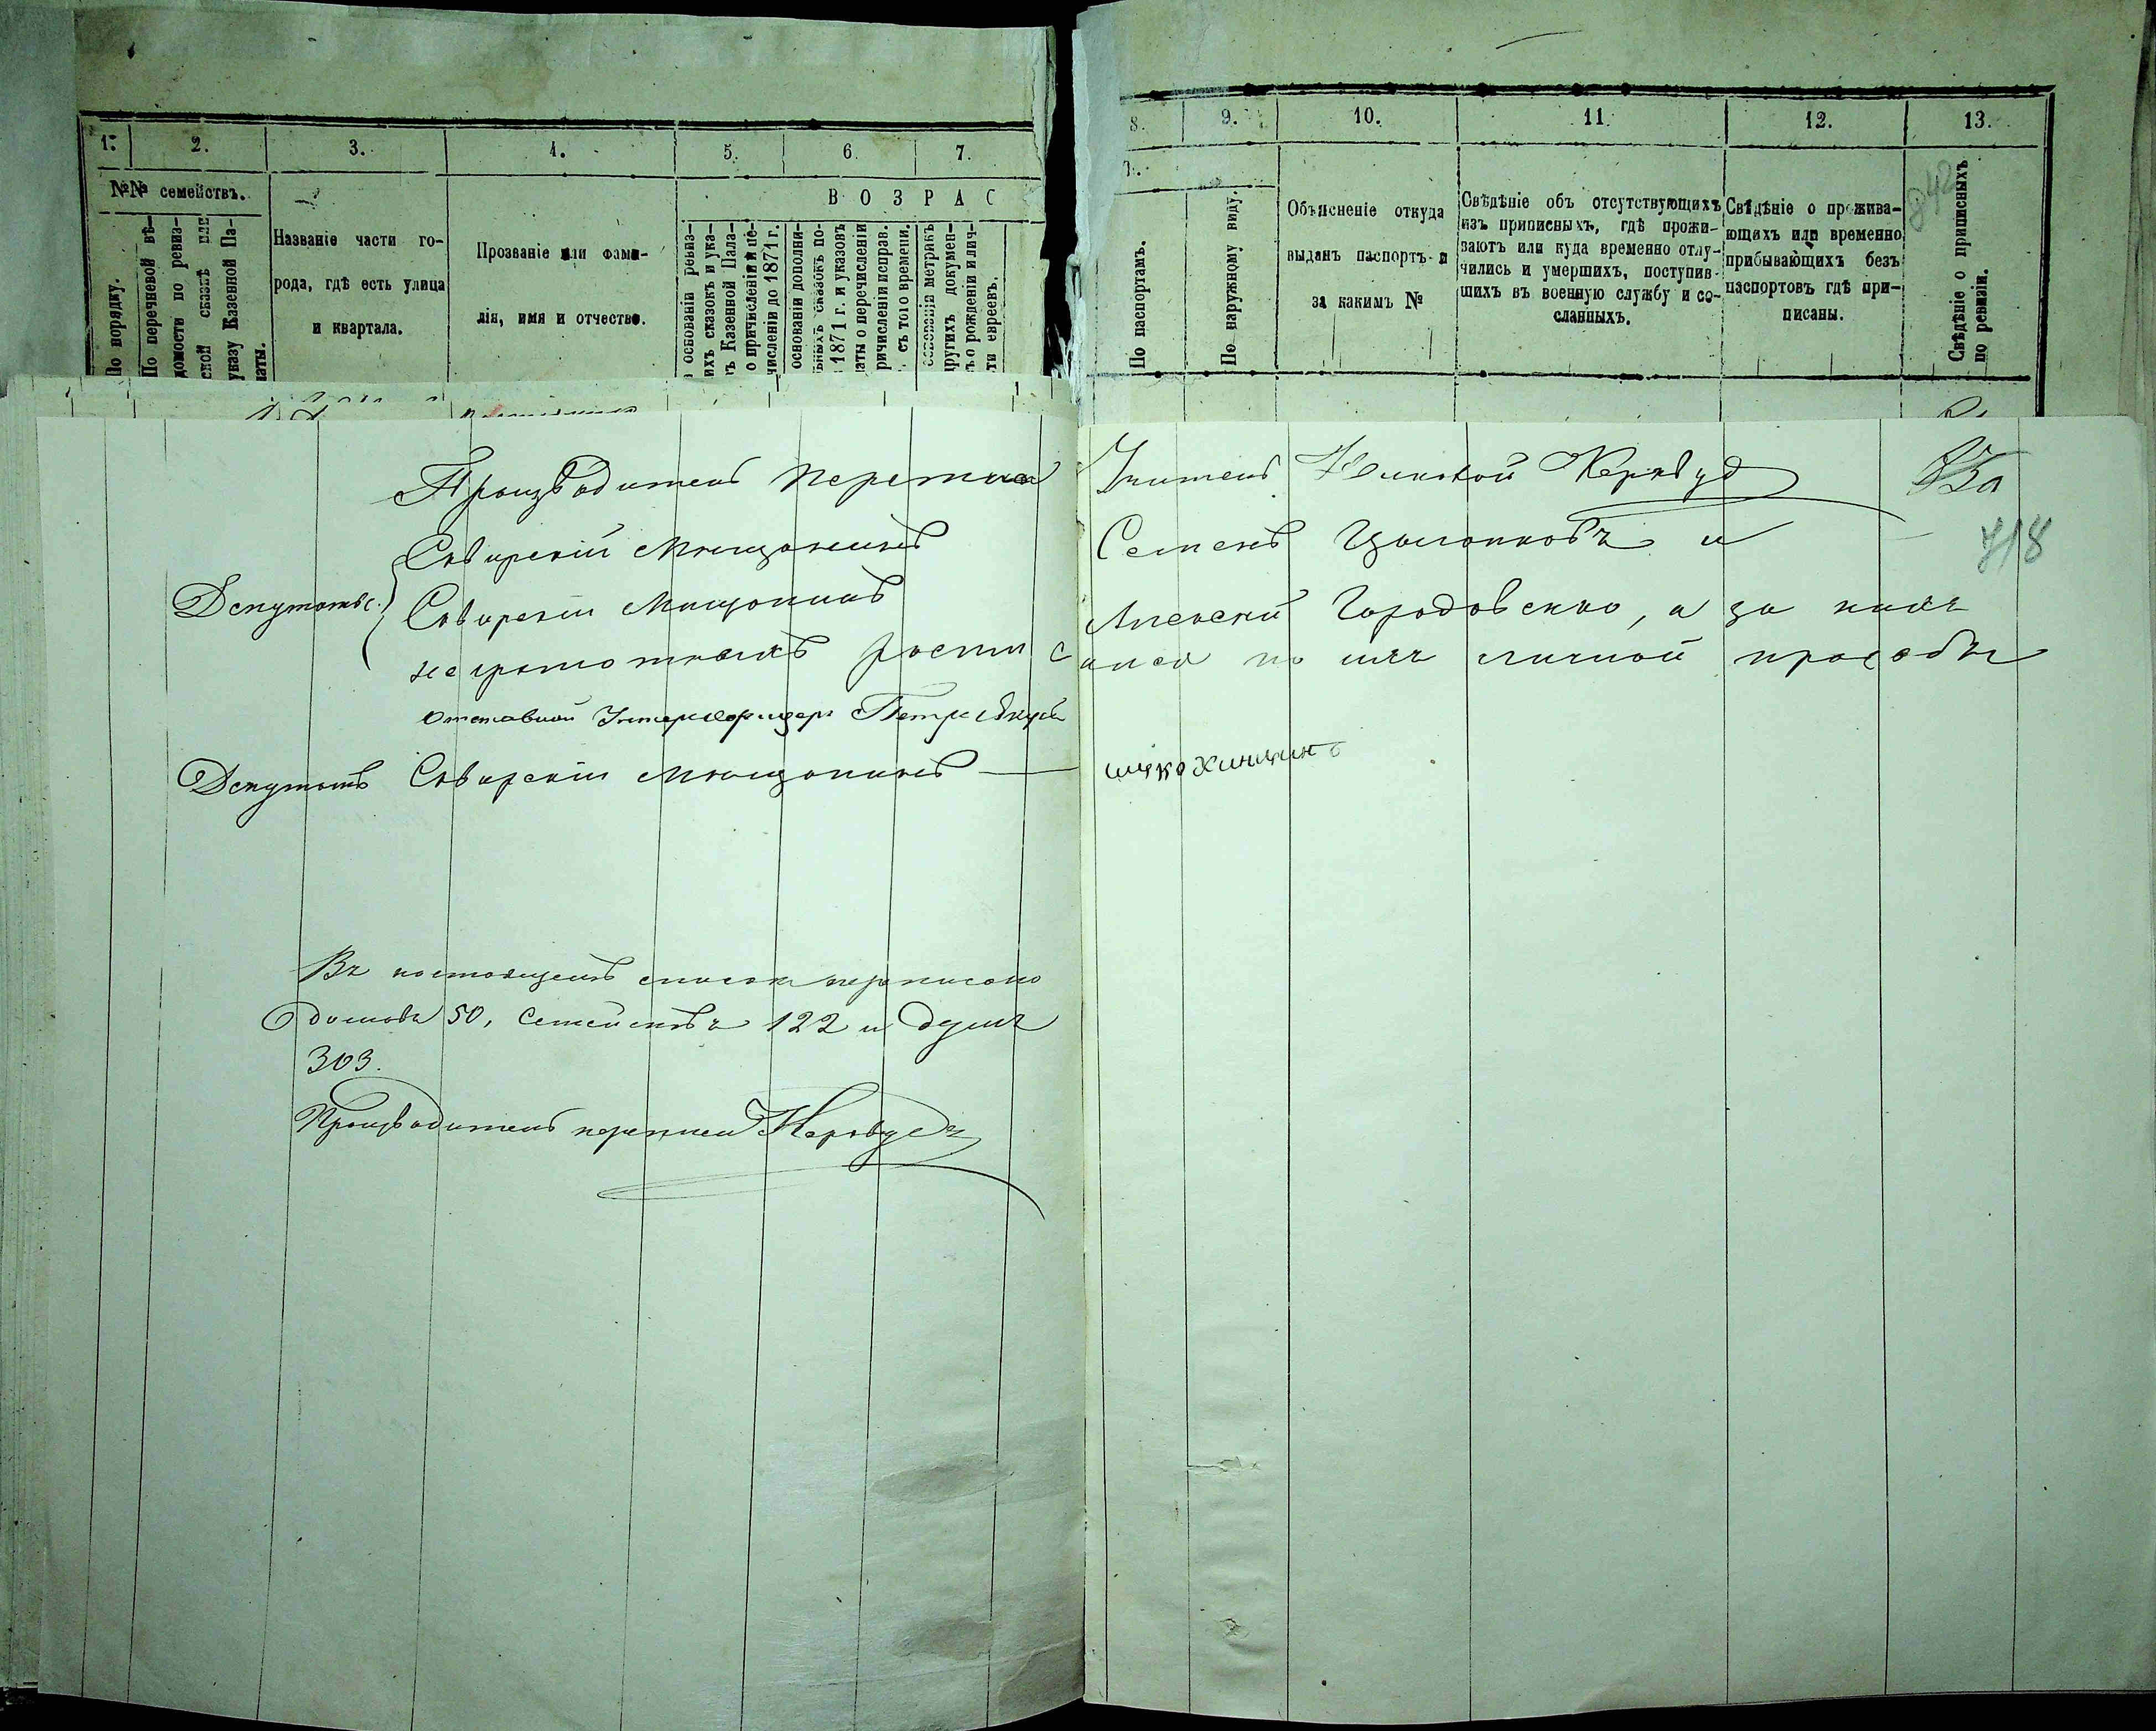 1. 2. 3. 4. 5. 6. 7.
№№ семействъ.
В О З Р А С
По порядку.
По перечневой вѣ-
домости по ревиз-
ской сказкѣ или
указу Казенной Па-
латы.
Названіе части го-
рода, гдѣ есть улица
и квартала.
Прозваніе или фами-
лія, имя и отчество.
основаніи ревиз-
ихъ сказокъ и ука-
въ Казенной Пала-
о причисленіи и пе-
численіи до 1871 г.
основаніи дополни-
ьныхъ сказокъ по-
1871 г. и указовъ
латы о перечисленіи
ричисленіи исправ.
съ того времени.
основаніи метрикъ
ругихъ докумен-
ъ о рожденіи и лич-
ти евреевъ.
8. 9. 10. 11. 12. 13.
По паспортамъ.
По наружному виду.
Объясненіе откуда
выданъ паспортъ и
за какимъ №
Свѣдѣніе объ отсутствующихъ
изъ приписныхъ, гдѣ прожи-
ваютъ или куда временно отлу-
чились и умершихъ, поступив-
шихъ въ военную службу и со-
сланныхъ.
Свѣдѣніе о прожива-
ющихъ или временно
прибывающихъ безъ
паспортовъ гдѣ при-
писаны.
Свѣдѣніе о приписныхъ
по ревизіи.
242
Производитель переписи Учитель Керявуд
718
Сквирскій Мѣщанинъ Семенъ и
Депутаты: Сквирскій Мещанинъ Алексей Городовенко, а за нихъ
неграмотныхъ росписался по ихъ личной прозьбѣ
Отставной Унтерофицеръ Петръ
Депутатъ Сквирскій Мѣщанинъ —
Въ настоящемъ списке переписано
домовъ 50, Семействъ 122 и душъ
303.
Производитель переписи Керявудъ